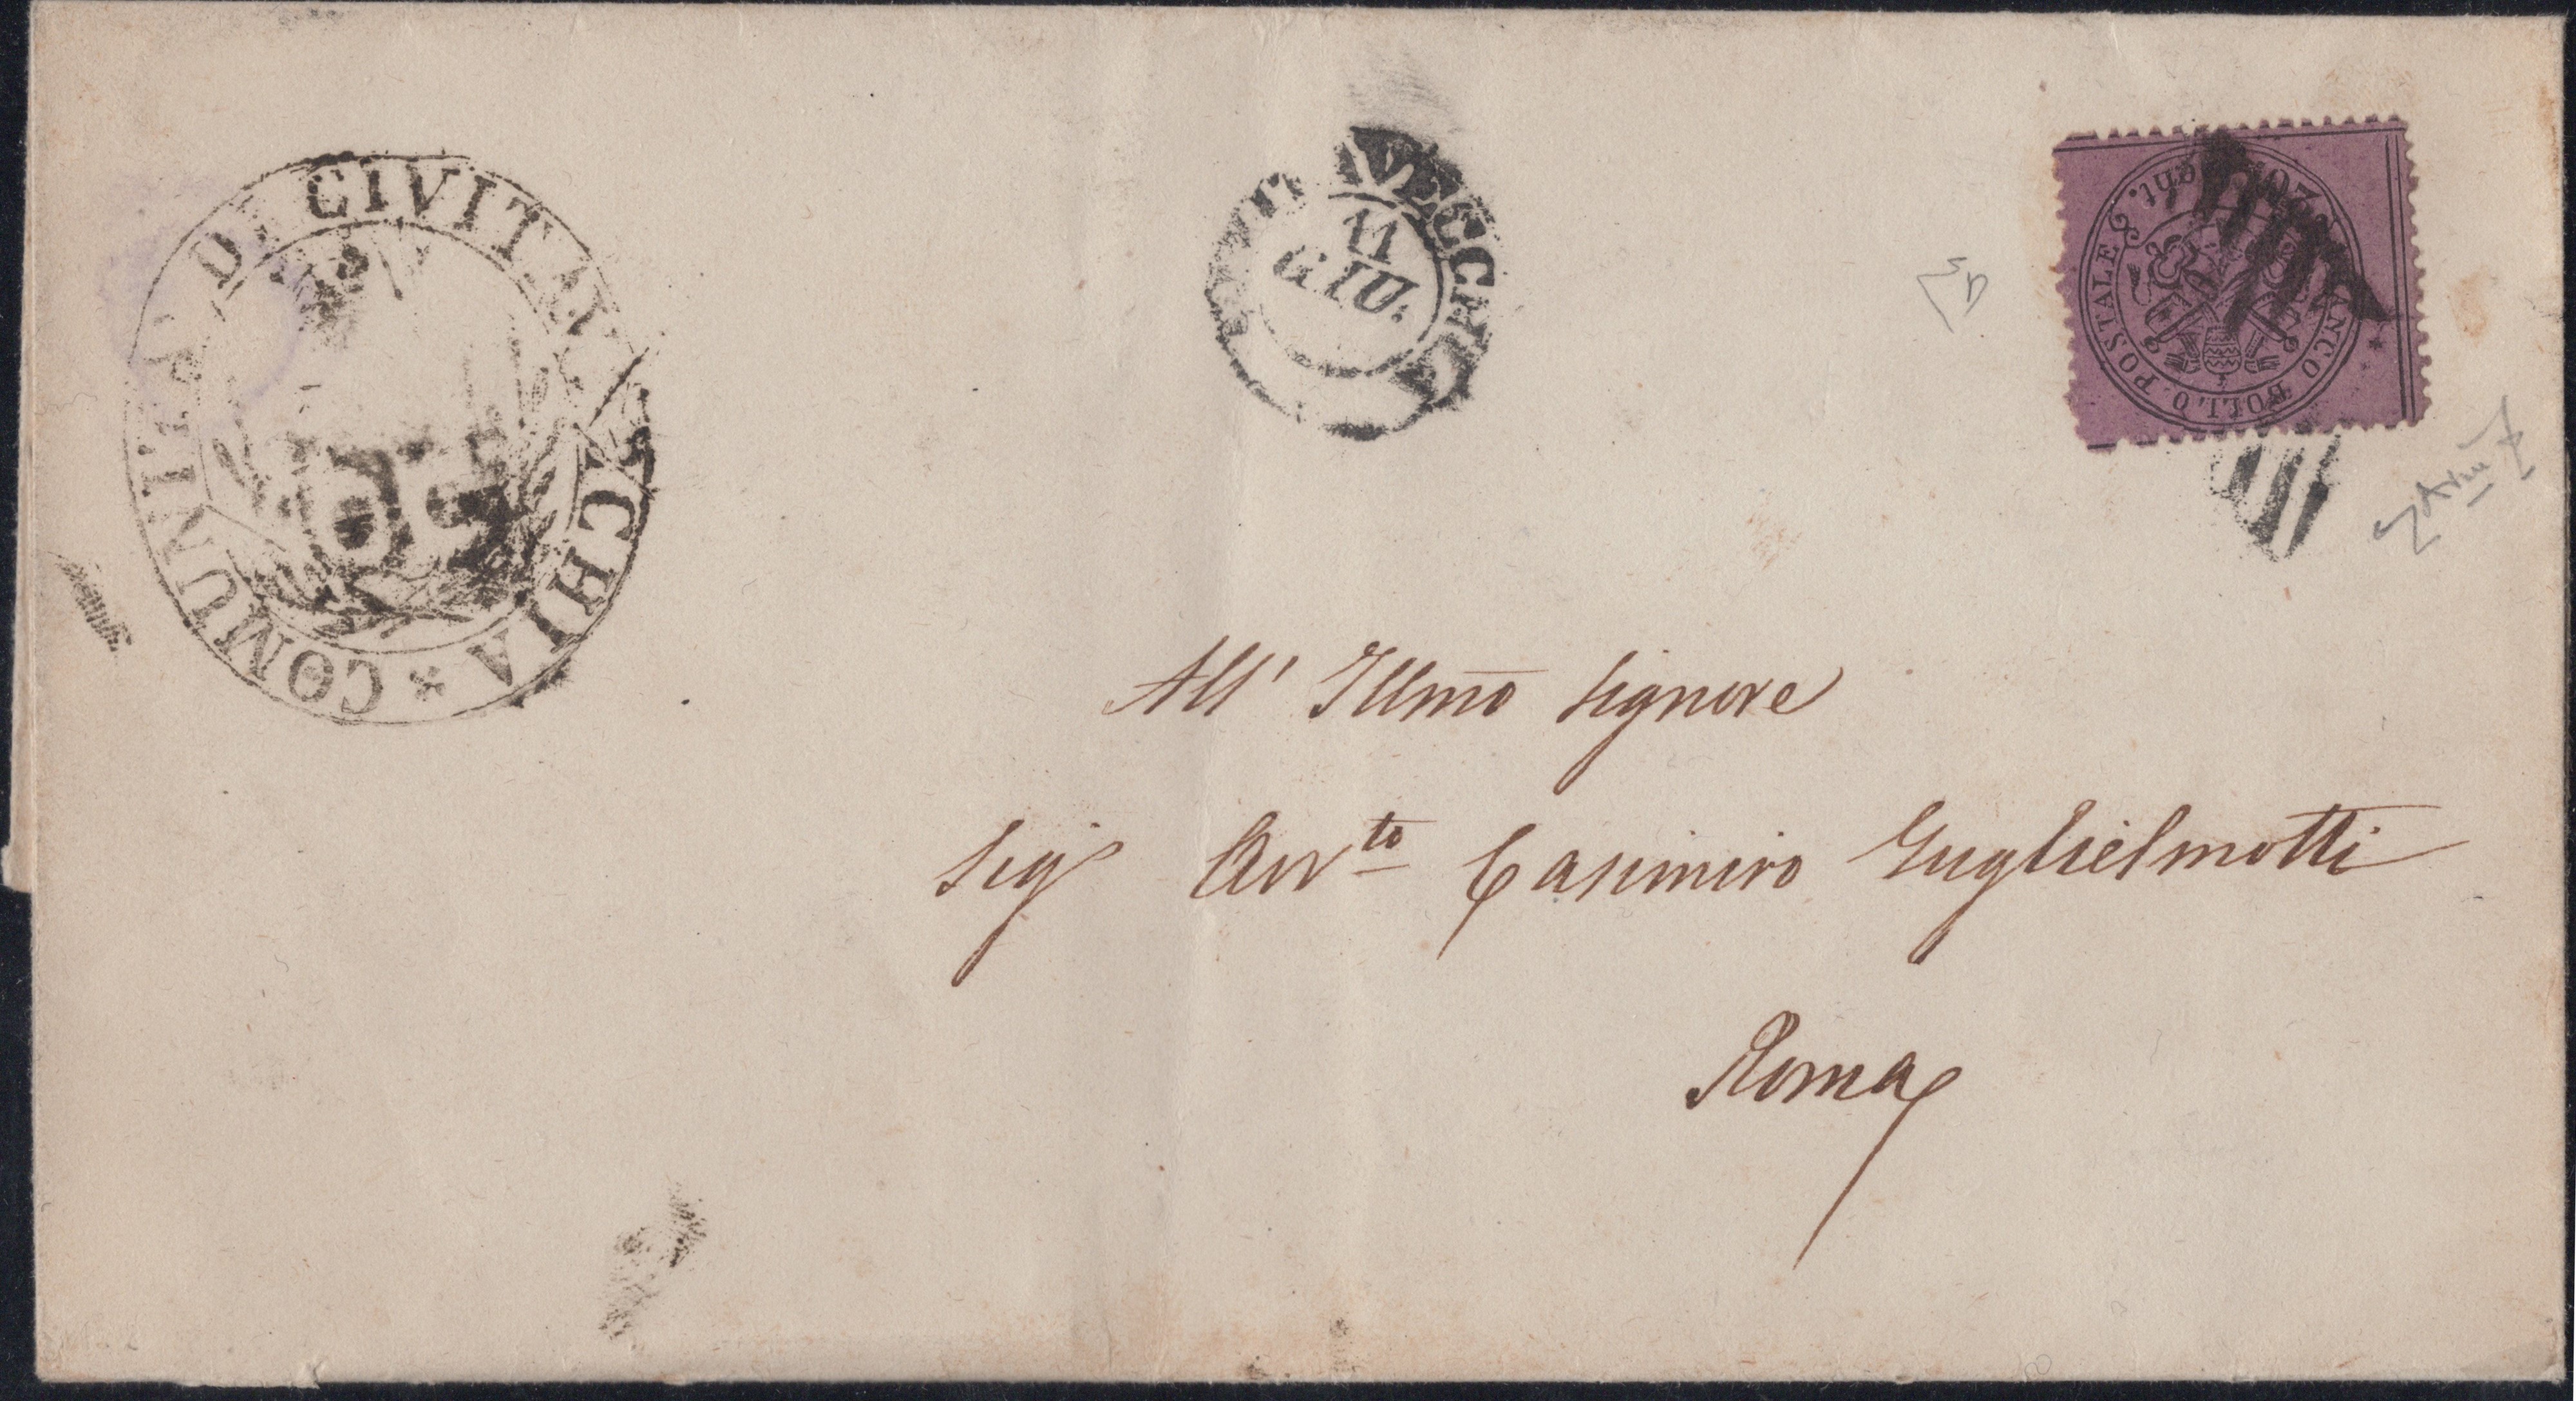 COMUNITA DI CIVITAVECCHIA
CIVITAVECCHIA
11
GIU.
FRANCO BOLLO POSTALE
20 Cent.
All' Illmo Signore
Sigr Avvto Casimiro Guglielmotti
Roma